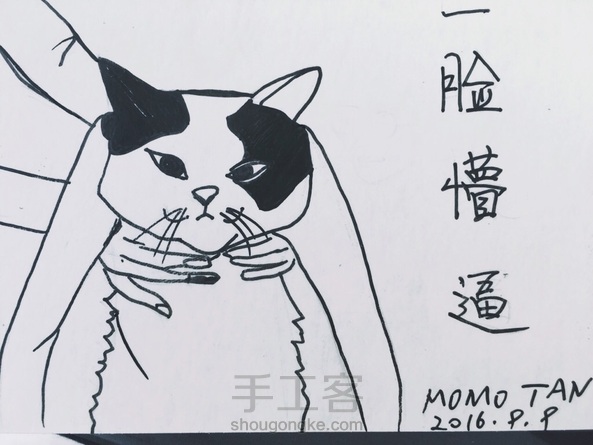 一脸懵逼
MOMO TAN
2016.8.8
手工客
shougongke.com